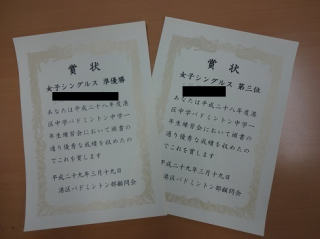 賞状
女子シングルス 準優勝
あなたは平成二十八年度港
区中学バドミントン中学一
年生練習会において頭書の
通り優秀な成績を収めたの
でこれを賞します
平成二十九年三月十九日
港区バドミントン部顧問会
賞状
女子シングルス 第三位
あなたは平成二十八年度港
区中学バドミントン中学一
年生練習会において頭書の
通り優秀な成績を収めたの
でこれを賞します
平成二十九年三月十九日
港区バドミントン部顧問会